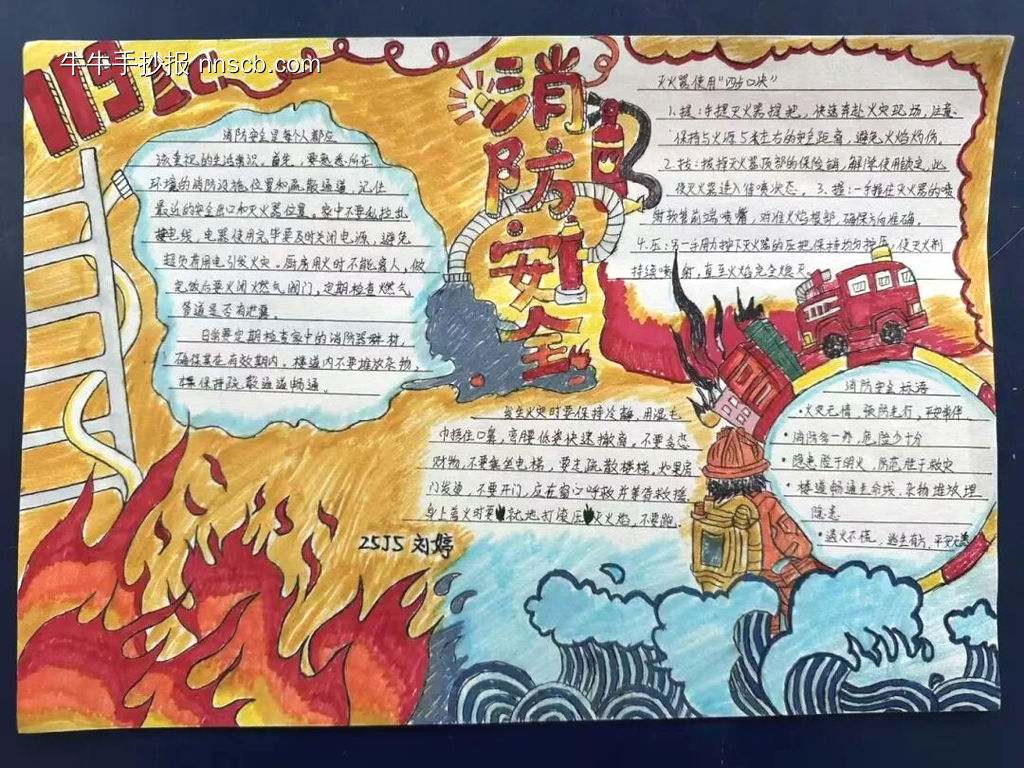 牛牛手抄报 nnscb.com
119
消防安全
消防安全是每个人都应
该重视的生活常识。首先,要熟悉所在
环境的消防设施位置和疏散通道,记住
最近的安全出口和灭火器位置。家中不要私拉乱
接电线,电器使用完毕要及时关闭电源,避免
超负荷用电引发火灾。厨房用火时不能离人,做
完饭后要火闭燃气阀门,定期检查燃气
管道是否有泄露。
日常要定期检查家中的消防器材,
确保其在有效期内。楼道内不要堆放杂物,
保持疏散通道畅通。
灭火器使用"四步口决"
1.提:手提灭火器提把,快速奔赴火灾现场,注意
保持与火源5米左右的安全距离,避免火焰灼伤。
2.拔:拔掉灭火器顶部的保险销,解除使用锁定,此
使灭火器进入值喷状态。3.握:一手握住灭火器的喷
射软管前端喷嘴,对准火焰根部,确保方向准确。
4.压:另一手用力按下灭火器的压把,保持均匀按压,使灭火剂
持续喷射,直至火焰完全熄灭。
发生火灾时要保持冷静,用湿毛
巾捂住口鼻,弯腰低姿快速撤离。不要贪恋
财物,不要乘坐电梯,要走疏散楼梯。如果房
门发烫,不要开门,应在窗口呼救并等待救援
身上着火时要就地打滚压灭火焰,不要跑。
25J5 刘婷
消防安全标语
·火灾无情,预防先行,平安常伴
·消防多一养,危险少十分
·隐患险于明火,防范胜于救灾
·楼道畅通生命线,杂物堆放埋
隐患
·遇火不慌,逃生有方,平安无恙